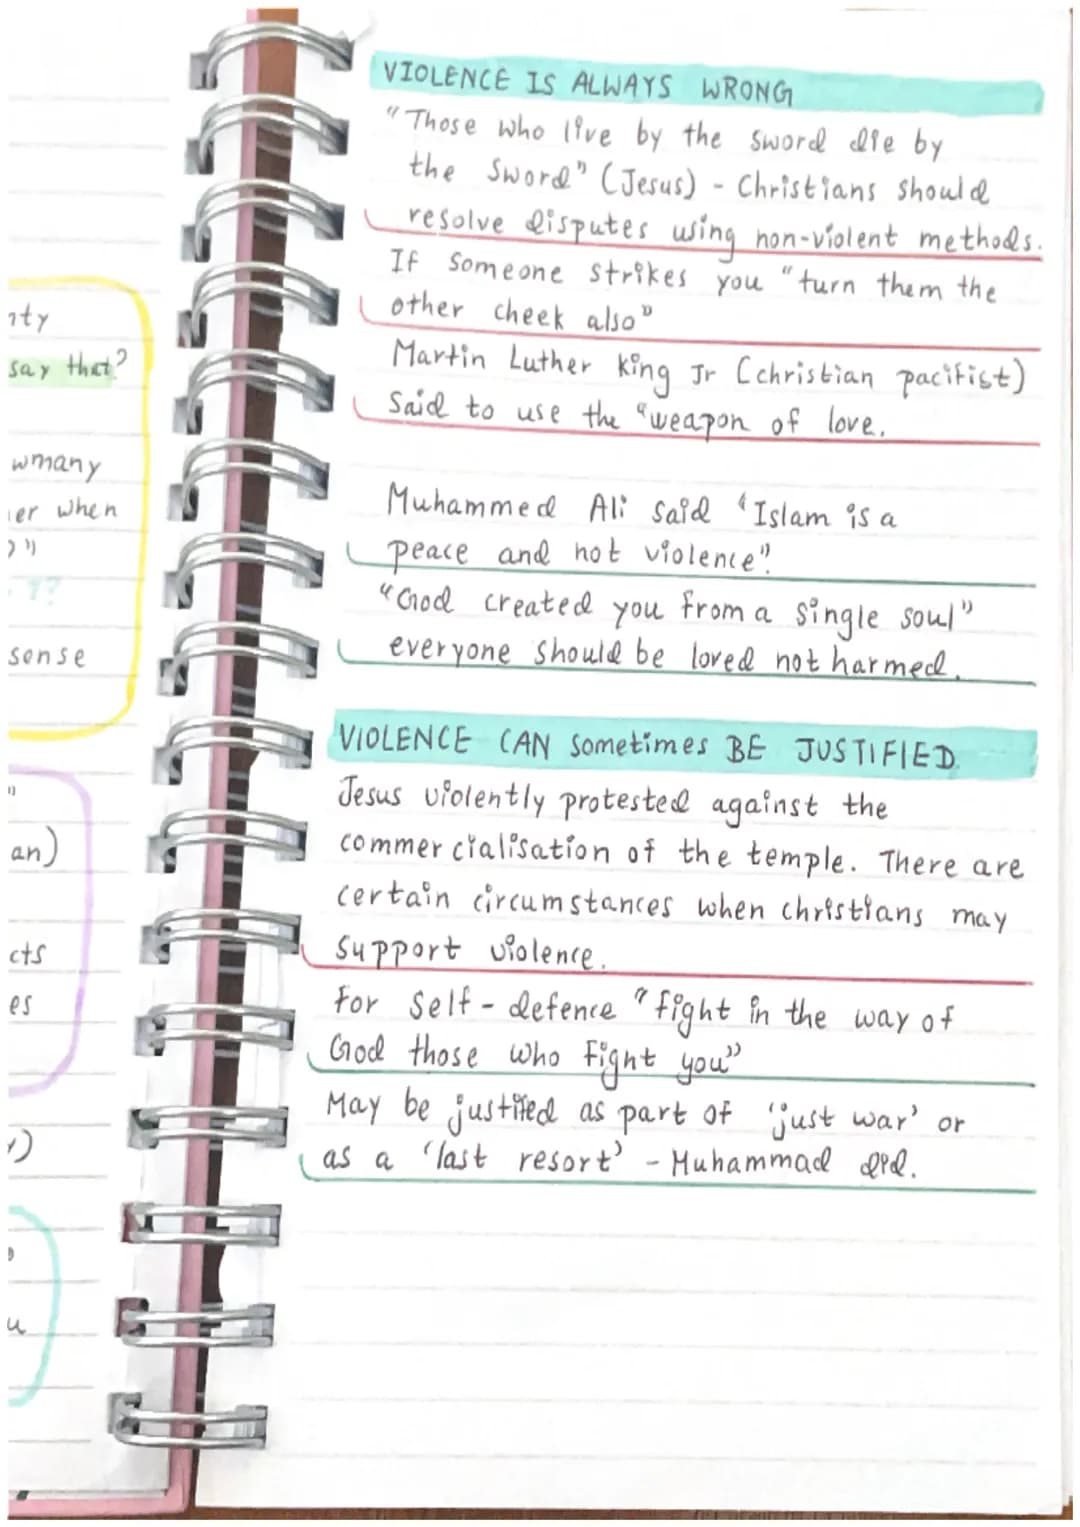 nty
say that?
wmany
er when
?")
??
sense
"
an)
cts
es
)
u
VIOLENCE IS ALWAYS WRONG
"Those who live by the sword die by
the sword" (Jesus) - Christians should
resolve disputes using non-violent methods.
If someone strikes you "turn them the
other cheek also"
Martin Luther King Jr (christian pacifist)
Said to use the "weapon of love.
Muhammed Ali said "Islam is a
peace and not violence".
"God created you from a single soul"
everyone should be loved not harmed.
VIOLENCE CAN sometimes BE JUSTIFIED
Jesus violently protested against the
commercialisation of the temple. There are
certain circumstances when christians may
support violence.
For self-defence "fight in the way of
God those who fight you"
May be justified as part of 'just war' or
as a 'last resort' - Muhammad did.